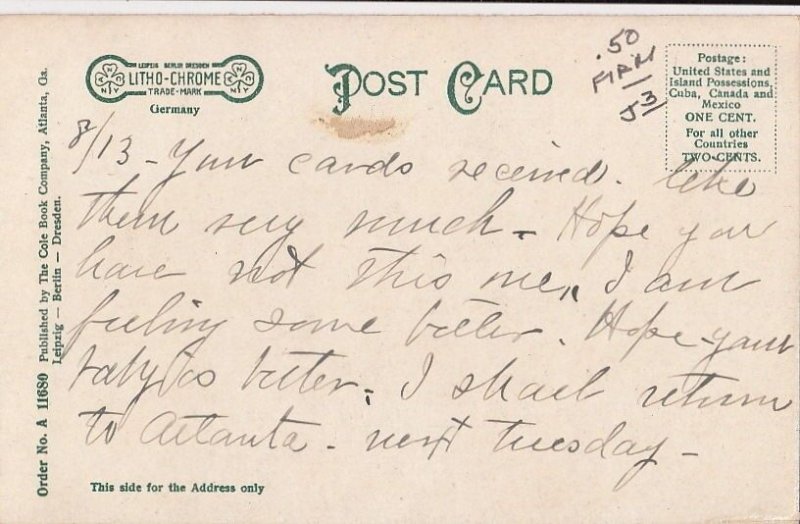 LEIPZIG BERLIN DRESDEN
LITHO-CHROME
TRADE-MARK
Germany
POST CARD
.50
53
Postage:
United States and
Island Possessions,
Cuba, Canada and
Mexico
ONE CENT.
For all other
Countries
TWO-CENTS.
8/13 - Your cards received. like
them very much - Hope you
have not this one, I am
feeling some better. Hope your
baby is better. I shall return
to Atlanta - next Tuesday -
Order No. A 11680 Published by The Cole Book Company, Atlanta, Ga.
Leipzig — Berlin — Dresden.
This side for the Address only